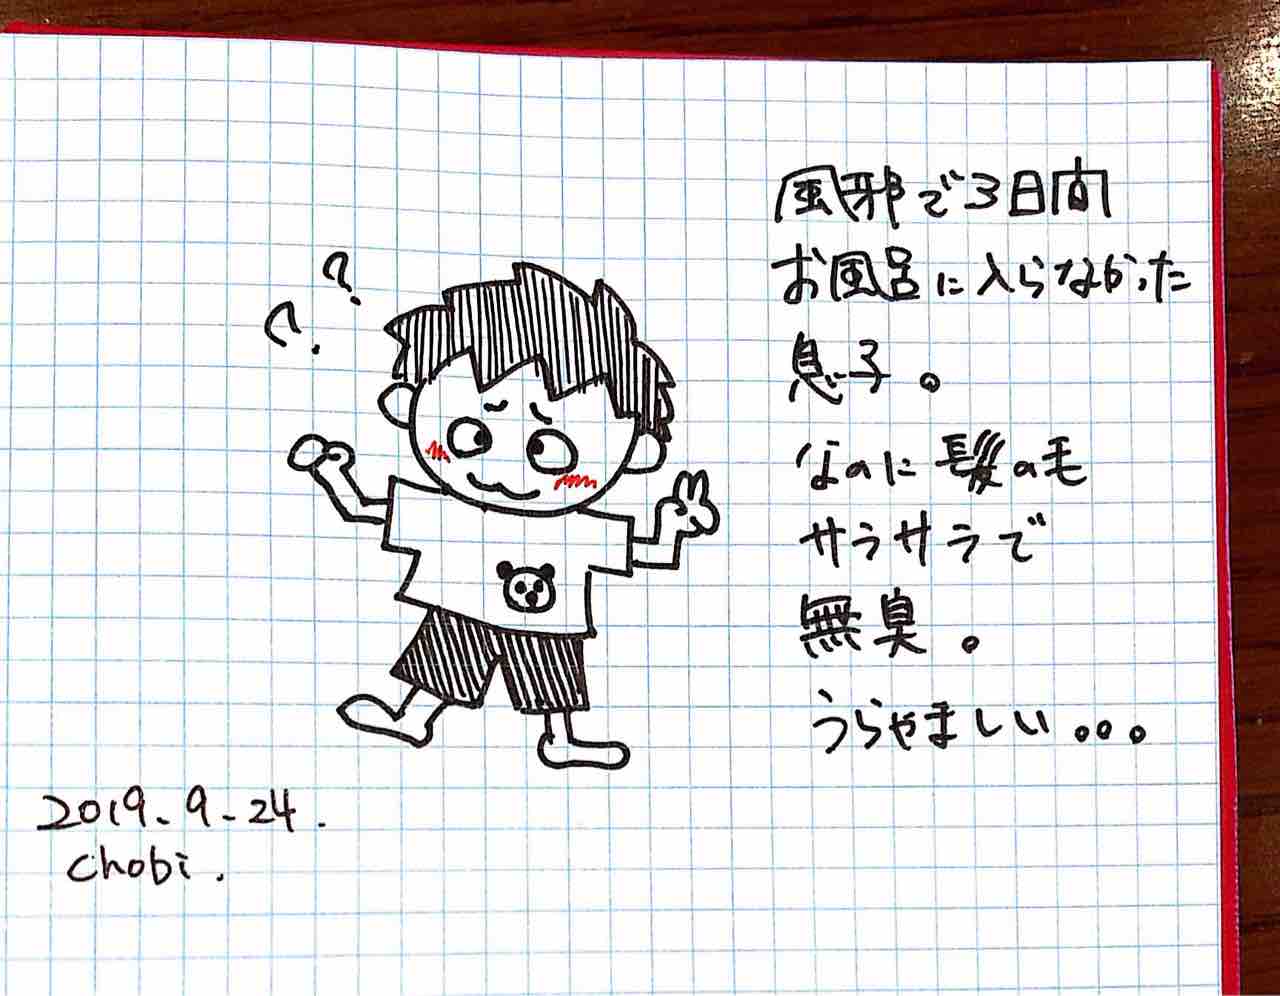 ? ?
風邪で3日間
お風呂に入らなかった
息子。
なのに髪の毛
サラサラで
無臭。
うらやましい。。。
2019.9.24.
chobi.